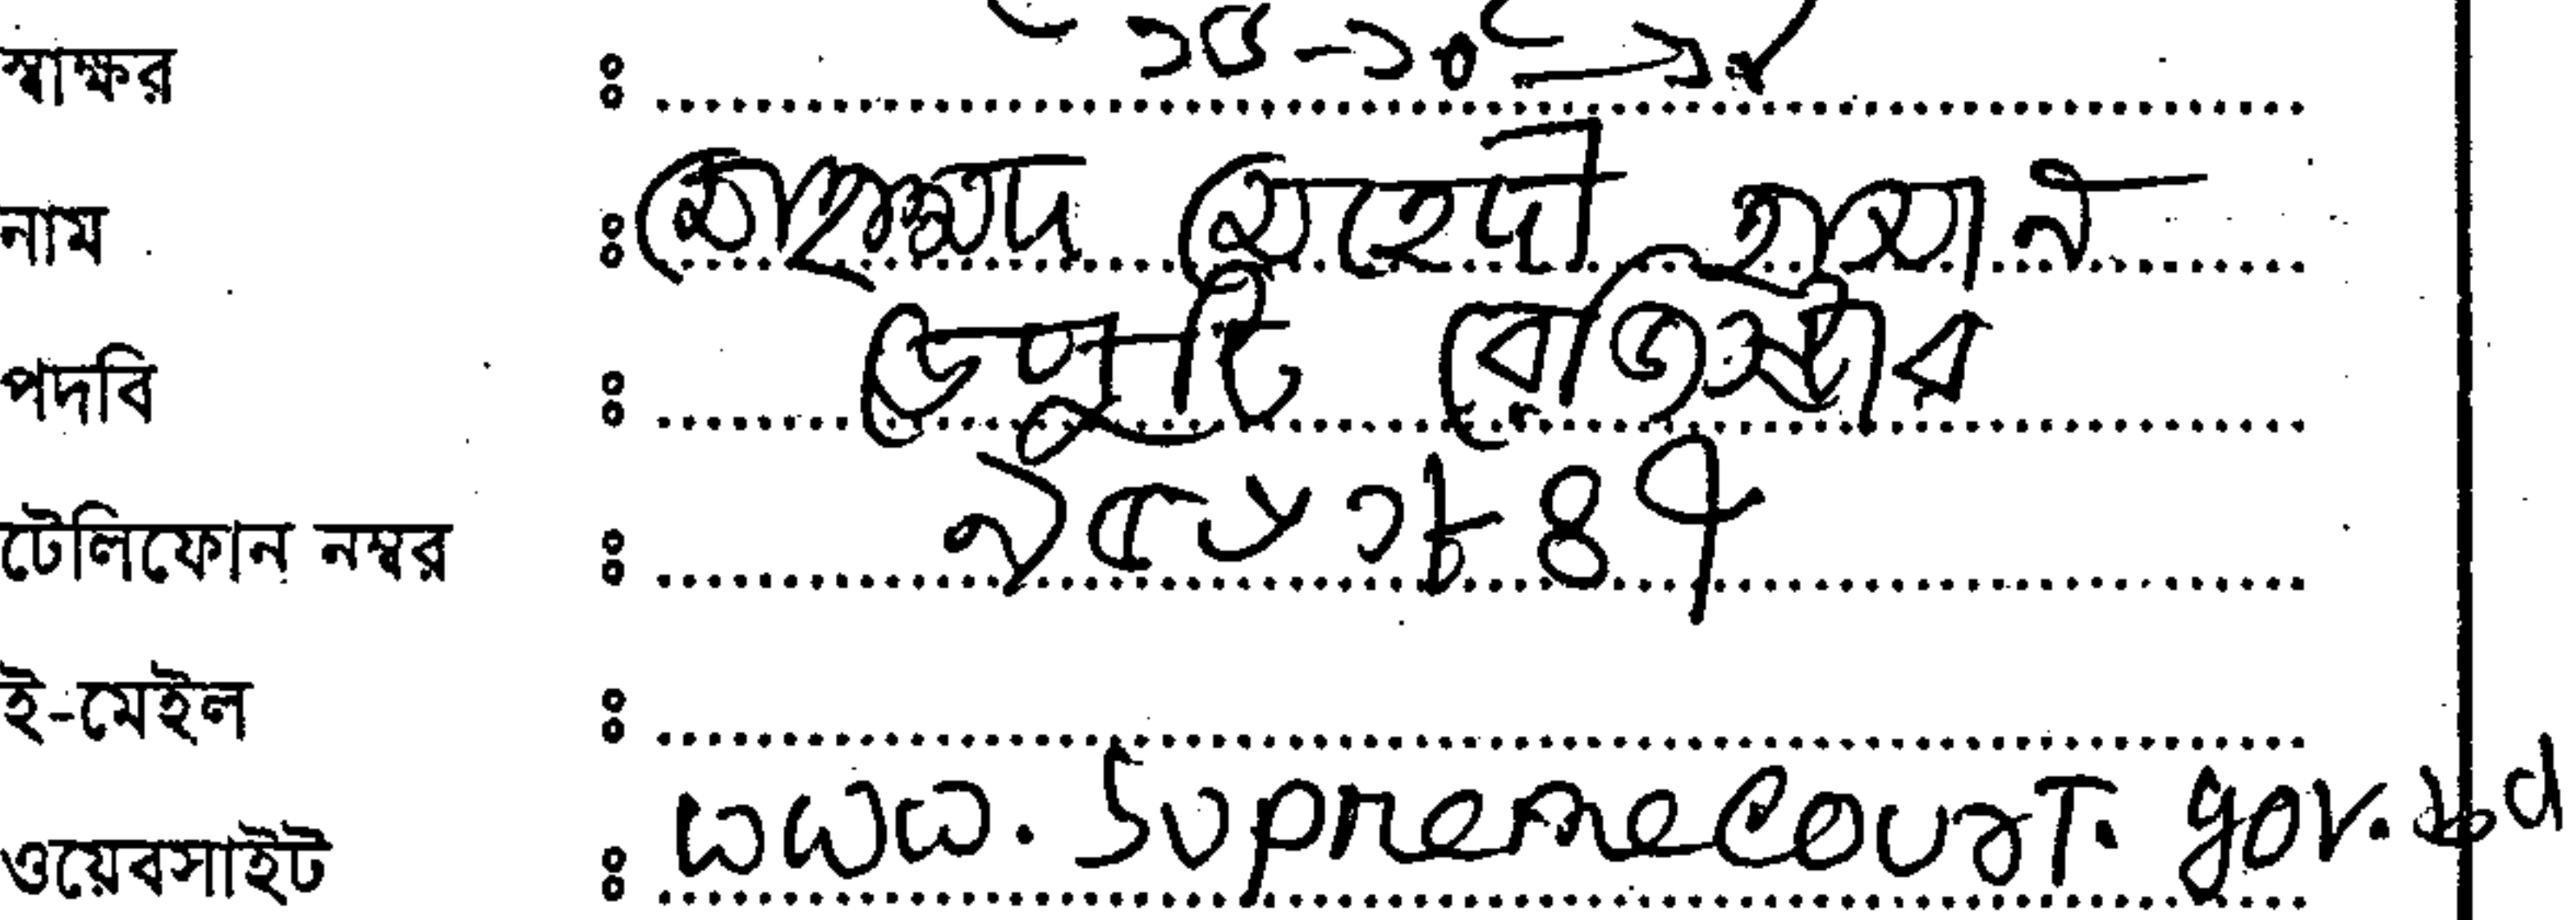 স্বাক্ষর :
নাম : মোহাম্মদ মেহেদী হাসান
পদবি : ডেপুটি রেজিস্ট্রার
টেলিফোন নম্বর : ৯৫৬১৮৪৭
ই-মেইল :
ওয়েবসাইট : www.supremecourt.gov.bd